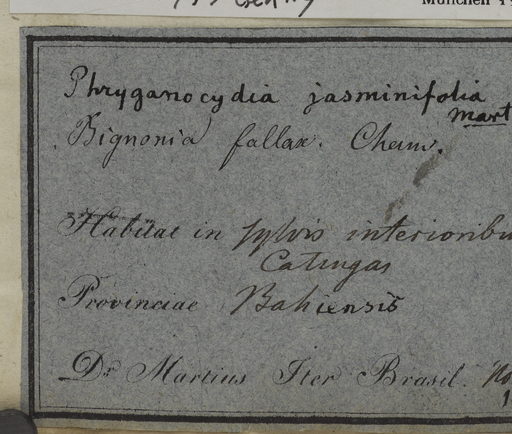 München
Phryganocydia jasminifolia
Mart
Bignonia fallax. Cham.
Habitat in sylvis interioribu
Catingas
Provinciae Bahiensis
Dr. Martius Iter Brasil. No
1